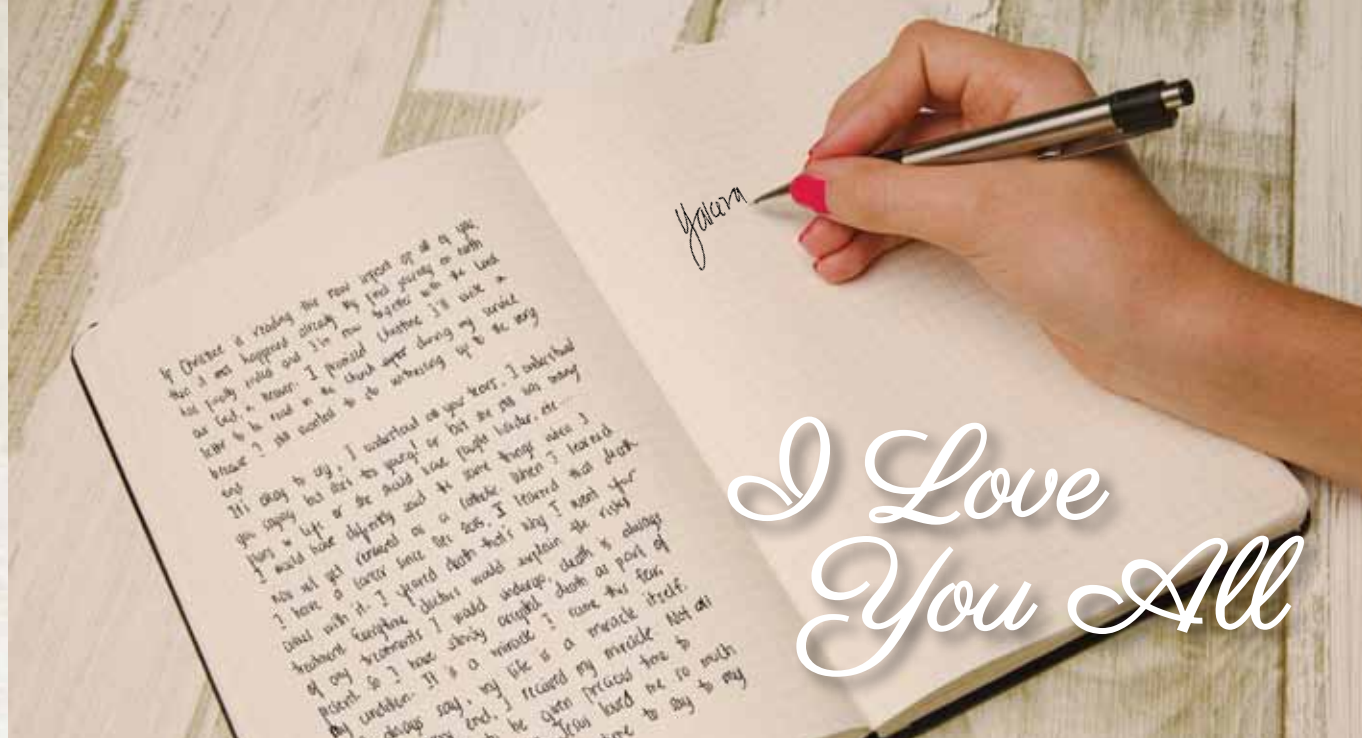 If Christine is reading this now infront of all of you,
then it happened already. My final journey on earth
has finally ended and I'm now together with the Lord
our God in heaven. I promised Christine I'll write a
letter to be read in the church during my service
because I still wanted to do witnessing up to the very
end.
It's okay to cry, I understand all your tears. I understand
you saying but she's so young! or but she still has many
plans in life or she should have fought harder, etc...
I would have definitely said the same things when I
was not yet renewed as a catholic when I learned
I have a cancer since Dec. I learned that death
comes with it. I feared death that's why I went for
treatment. Everytime doctors would explain the risks
of any treatments I would undergo, death is always
present. So I have slowly accepted death as part of
my condition. It is a miracle I this fear.
always say, my life is a miracle itself.
end, I received my miracle. Not all
to be given precious time to
Jesus loved me so much
time to say to my
I Love
You All